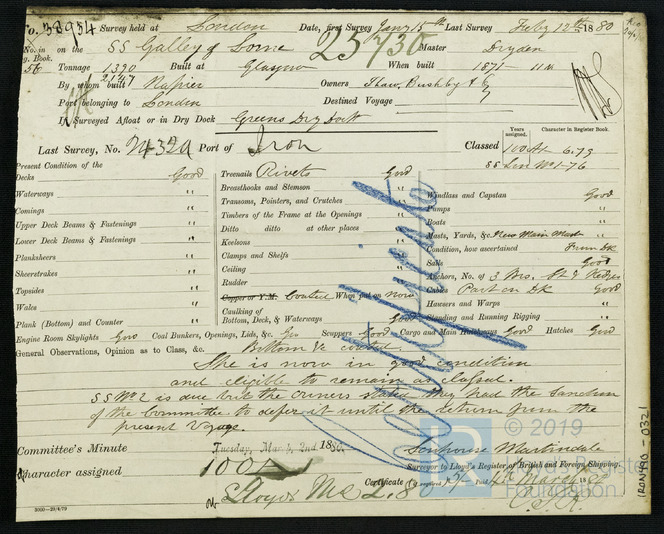 No. 38934 Survey held at London Date, first Survey Jany 15th Last Survey Feby 12th 1880
No. in Reg. Book. 56 on the SS Galley of Lorne 25730 Master Dryden
Tonnage 1390 2147 Built at Glasgow When built 1871 - 11m
By whom built Napier Owners Thaw, Bushby & Co
Port belonging to London Destined Voyage
If Surveyed Afloat or in Dry Dock Greens Dry Dock
Last Survey, No. 24320 Port of Iron Classed 100A1 6.73
Years assigned. Character in Register Book.
SS Lon No1-76
Present Condition of the
Decks Good
Waterways "
Comings "
Upper Deck Beams & Fastenings "
Lower Deck Beams & Fastenings "
Planksheers "
Sheerstrakes "
Topsides "
Wales "
Plank (Bottom) and Counter "
Treenails Rivets Good
Breasthooks and Stemson "
Transoms, Pointers, and Crutches "
Timbers of the Frame at the Openings "
Ditto ditto at other places "
Keelsons "
Clamps and Shelfs "
Ceiling "
Rudder "
Copper or Y.M. Coated When put on Now
Caulking of Bottom, Deck, & Waterways Good
Windlass and Capstan Good
Pumps "
Boats "
Masts, Yards, &c. New Main Mast "
Condition, how ascertained From Dk
Sails Good
Anchors, No. of 3 Brs. St & Kedges
Cables Part on DK Good
Hawsers and Warps "
Standing and Running Rigging "
Engine Room Skylights Good Coal Bunkers, Openings, Lids, &c. Good Scuppers Good Cargo and Main Hatchways Good Hatches Good
General Observations, Opinion as to Class, &c. Bottom &c coated
She is now in good condition
and eligible to remain as classed.
SS No 2 is due but the owners stated they had the sanction
of the Committee to defer it until the return from the
present Voyage.
Senhouse Martindale
Surveyor to Lloyd's Register of British and Foreign Shipping.
Committee's Minute Tuesday, March 2nd 1880
Character assigned 100A1
Lloyds MC 2.80
Certificate
4th March 1880
3000-29/4/79
© 2019
Lloyd's Register Foundation
IRON490-0321